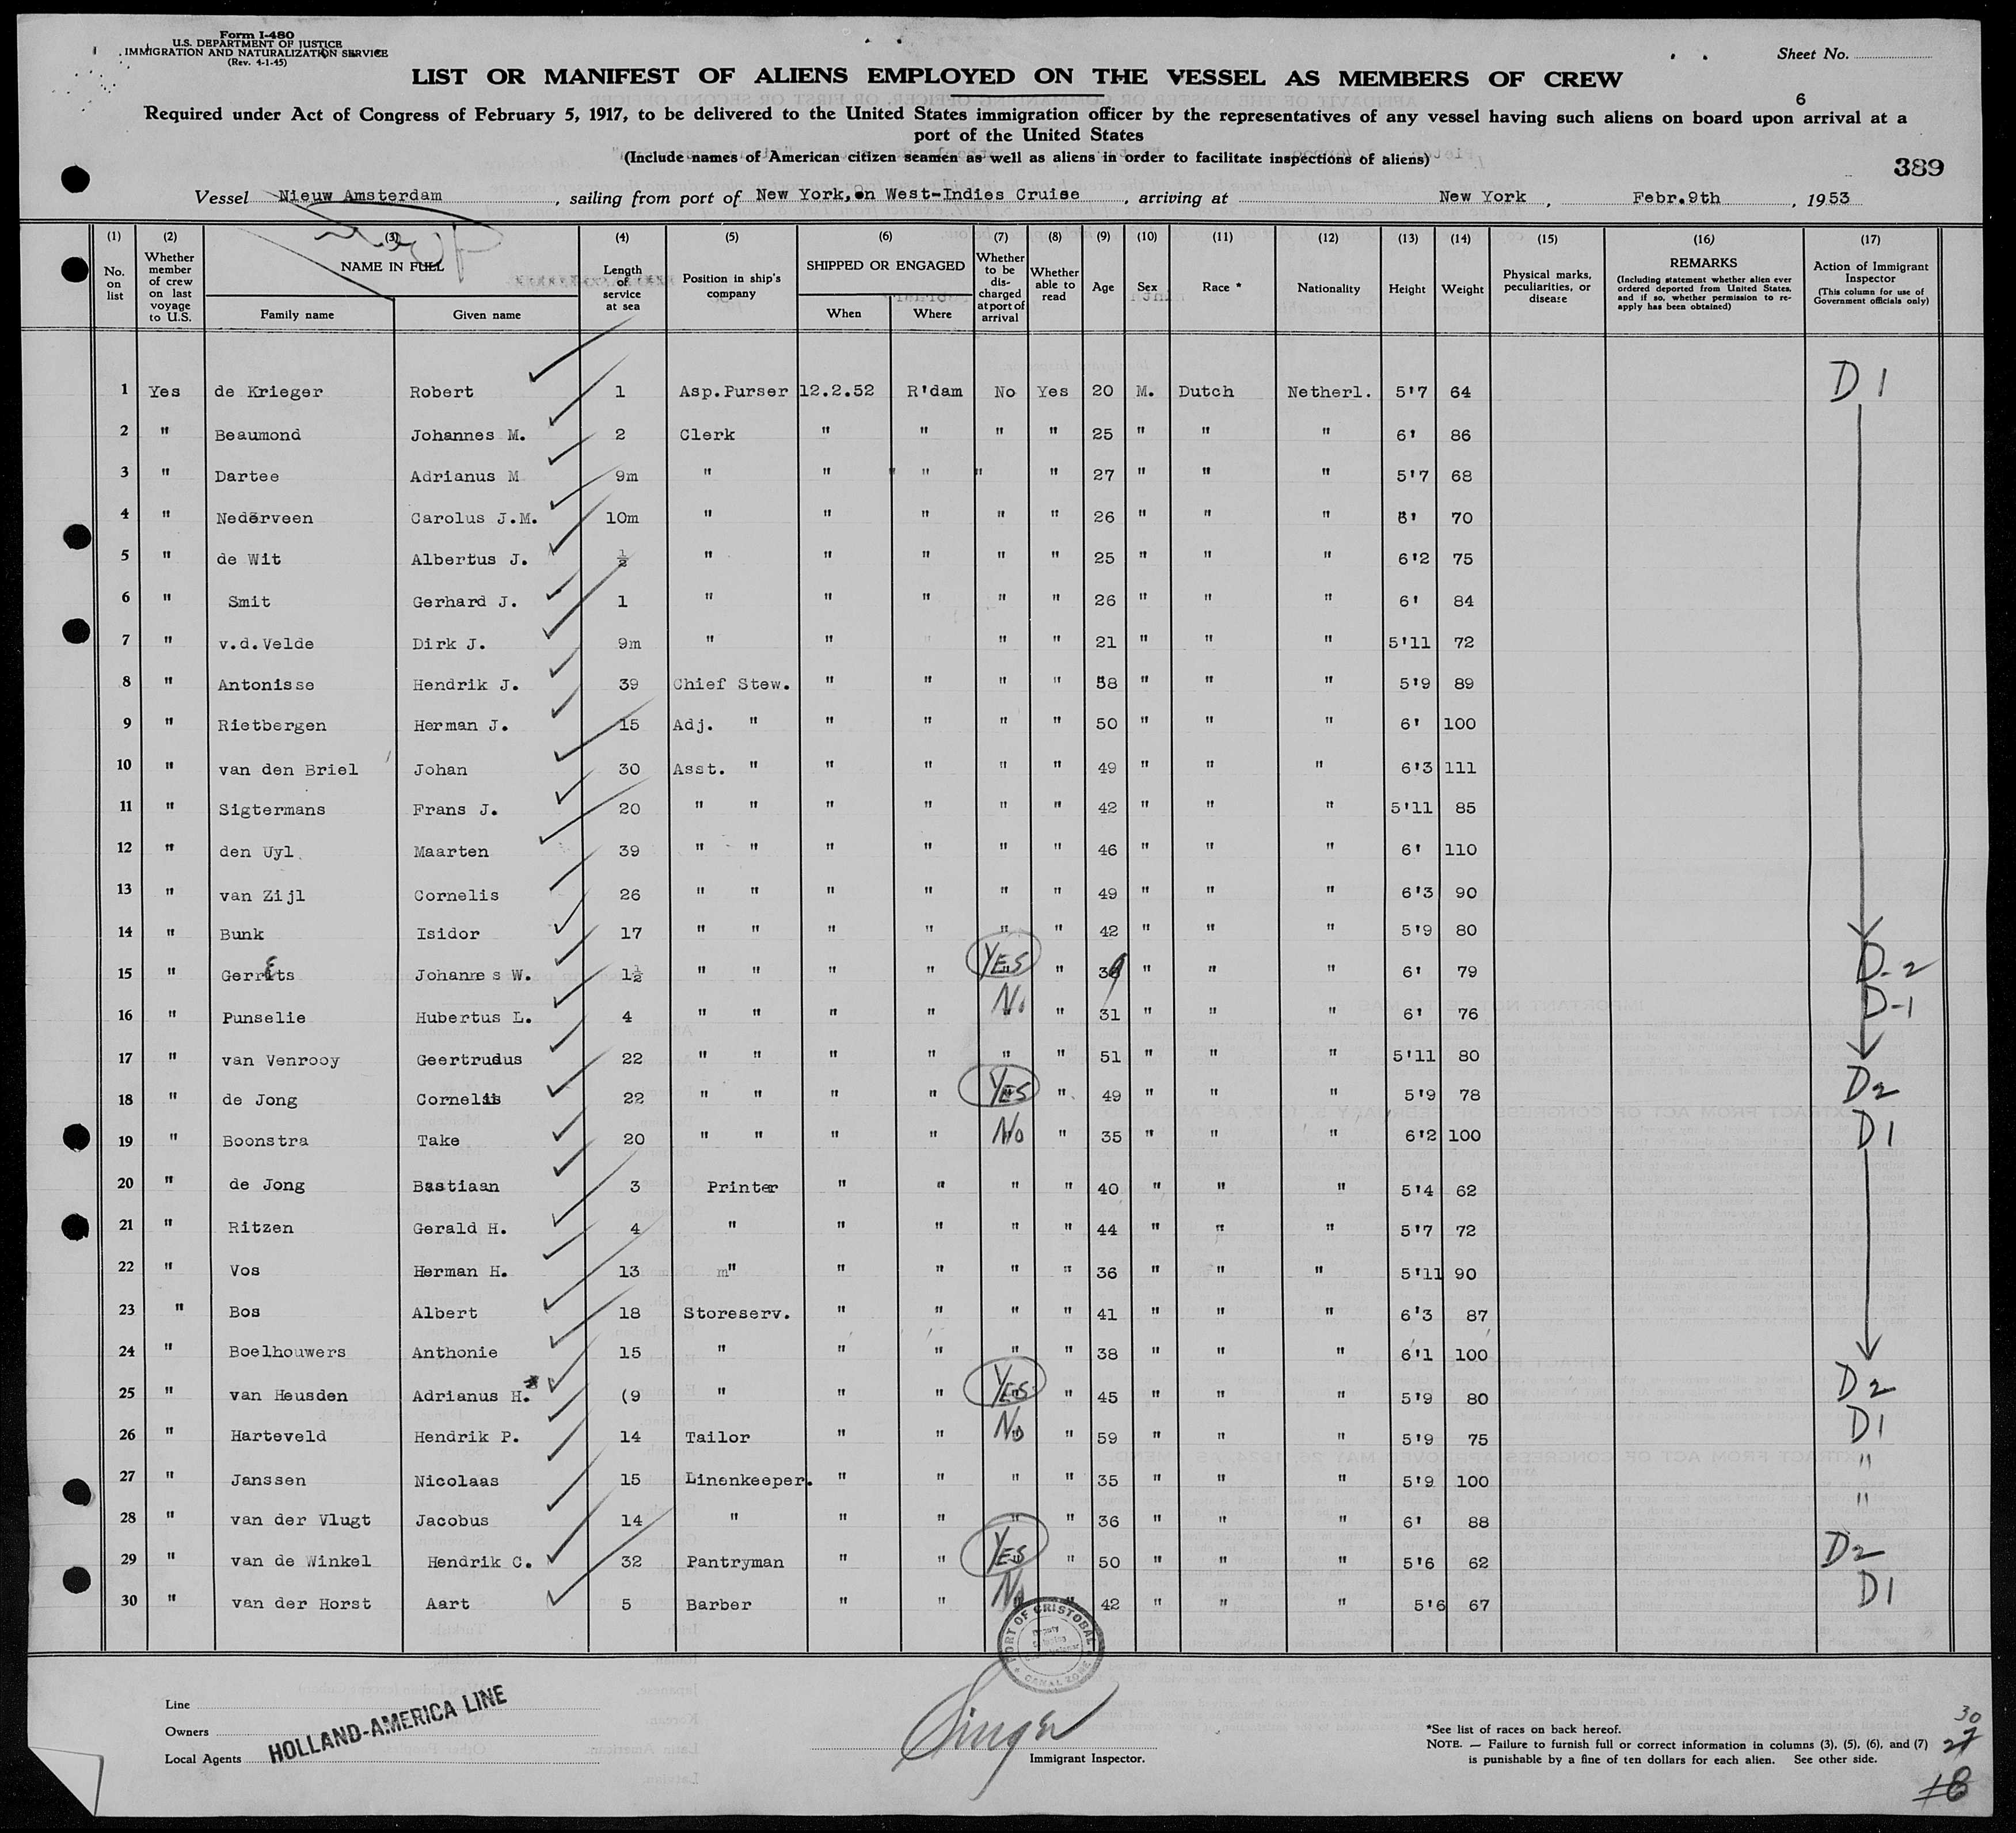 Form I-480
U.S. DEPARTMENT OF JUSTICE
IMMIGRATION AND NATURALIZATION SERVICE
(Rev. 4-1-45)
Sheet No.
LIST OR MANIFEST OF ALIENS EMPLOYED ON THE VESSEL AS MEMBERS OF CREW
6
Required under Act of Congress of February 5, 1917, to be delivered to the United States immigration officer by the representatives of any vessel having such aliens on board upon arrival at a
port of the United States
(Include names of American citizen seamen as well as aliens in order to facilitate inspections of aliens)
389
Vessel Nieuw Amsterdam, sailing from port of New York, on West-Indies Cruise, arriving at New York, Febr.9th, 1953
(1) (2) (3) (4) (5) (6) (7) (8) (9) (10) (11) (12) (13) (14) (15) (16) (17)
No. on list
Whether member of crew on last voyage to U.S.
NAME IN FULL
Family name Given name
Length of service at sea
Position in ship's company
SHIPPED OR ENGAGED
When Where
Whether to be discharged at port of arrival
Whether able to read
Age
Sex
Race *
Nationality
Height
Weight
Physical marks, peculiarities, or disease
REMARKS
(Including statement whether alien ever ordered deported from United States, and if so, whether permission to reapply has been obtained)
Action of Immigrant Inspector
(This column for use of Government officials only)
1 Yes de Krieger Robert 1 Asp.Purser 12.2.52 R'dam No Yes 20 M. Dutch Netherl. 5'7 64 D 1
2 " Beaumond Johannes M. 2 Clerk " " " " 25 " " " 6' 86
3 " Dartee Adrianus M 9m " " " " " 27 " " " 5'7 68
4 " Nederveen Carolus J.M. 10m " " " " " 26 " " " 6' 70
5 " de Wit Albertus J. ½ " " " " " 25 " " " 6'2 75
6 " Smit Gerhard J. 1 " " " " " 26 " " " 6' 84
7 " v.d.Velde Dirk J. 9m " " " " " 21 " " " 5'11 72
8 " Antonisse Hendrik J. 39 Chief Stew. " " " " 58 " " " 5'9 89
9 " Rietbergen Herman J. 15 Adj. " " " " " 50 " " " 6' 100
10 " van den Briel Johan 30 Asst. " " " " " 49 " " " 6'3 111
11 " Sigtermans Frans J. 20 " " " " " " 42 " " " 5'11 85
12 " den Uyl Maarten 39 " " " " " " 46 " " " 6' 110
13 " van Zijl Cornelis 26 " " " " " " 49 " " " 6'3 90
14 " Bunk Isidor 17 " " " " " " 42 " " " 5'9 80
15 " Gerrets Johannes W. 1½ " " " " YES " 39 " " " 6' 79 D-2
16 " Punselie Hubertus L. 4 " " " " No " 31 " " " 6' 76 D-1
17 " van Venrooy Geertrudus 22 " " " " " " 51 " " " 5'11 80
18 " de Jong Cornelis 22 " " " " YES " 49 " " " 5'9 78 D2
19 " Boonstra Take 20 " " " " No " 35 " " " 6'2 100 D1
20 " de Jong Bastiaan 3 Printer " " " " 40 " " " 5'4 62
21 " Ritzen Gerald H. 4 " " " " " 44 " " " 5'7 72
22 " Vos Herman H. 13 m" " " " " 36 " " " 5'11 90
23 " Bos Albert 18 Storeserv. " " " " 41 " " " 6'3 87
24 " Boelhouwers Anthonie 15 " " " " " 38 " " " 6'1 100
25 " van Heusden Adrianus H. (9 " " " YES " 45 " " " 5'9 80 D2
26 " Harteveld Hendrik P. 14 Tailor " " No " 59 " " " 5'9 75 D1
27 " Janssen Nicolaas 15 Linenkeeper. " " " " 35 " " " 5'9 100 "
28 " van der Vlugt Jacobus 14 " " " " " 36 " " " 6' 88 "
29 " van de Winkel Hendrik C. 32 Pantryman " " YES " 50 " " " 5'6 62 D2
30 " van der Horst Aart 5 Barber " " No " 42 " " " 5'6 67 D1
PORT OF CRISTOBAL
CANAL ZONE
Line
Owners
Local Agents
HOLLAND-AMERICA LINE
Singer
Immigrant Inspector.
*See list of races on back hereof.
NOTE. — Failure to furnish full or correct information in columns (3), (5), (6), and (7)
is punishable by a fine of ten dollars for each alien. See other side.
30